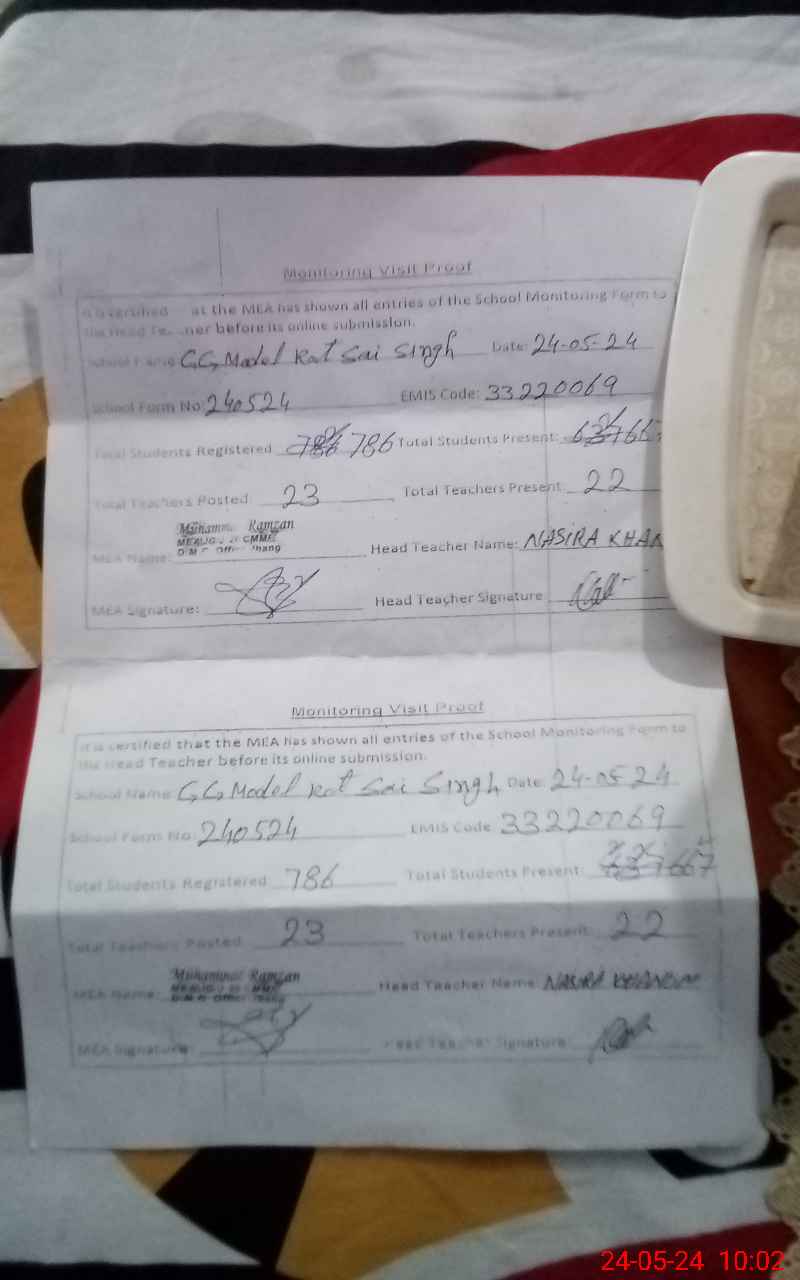 Monitoring Visit Proof
It is certified at the MEA has shown all entries of the School Monitoring Form to
the Head ner before its online submission.
School Name GG Model Kot Sai Singh Date: 24-05-24
School Form No: 240524 EMIS Code: 33220069
Total Students Registered 786 Total Students Present: 667
Total Teachers Posted 23 Total Teachers Present 22
Ramzan
MEA Name: Head Teacher Name: NASIRA KHAN
MEA Signature: Head Teacher Signature
Monitoring Visit Proof
It is certified that the MEA has shown all entries of the School Monitoring Form to
the Head Teacher before its online submission.
School Name GG Model Kot Sai Singh Date 24-05-24
School Form No 240524 EMIS Code 33220069
Total Students Registered 786 Total Students Present: 667
Total Teachers Posted 23 Total Teachers Present 22
Muhammad Ramzan
MEA Name: Head Teacher Name NASIRA
MEA Signature: Signature
24-05-24 10:02